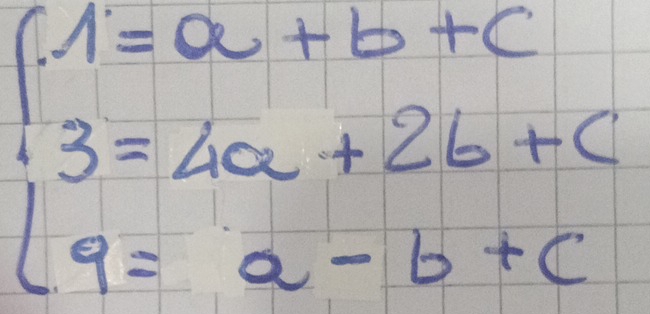 1 = a + b + c
3 = 4a + 2b + c
9 = a - b + c